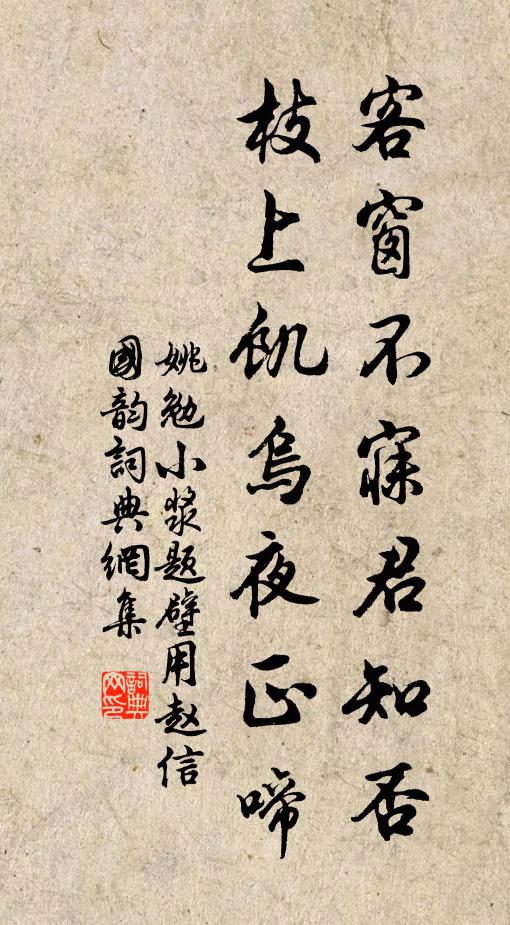 客窗不寐君知否
枝上飢烏夜正啼
姚勉小漿題壁用赵信
國韵詞典網集
詞典
网印